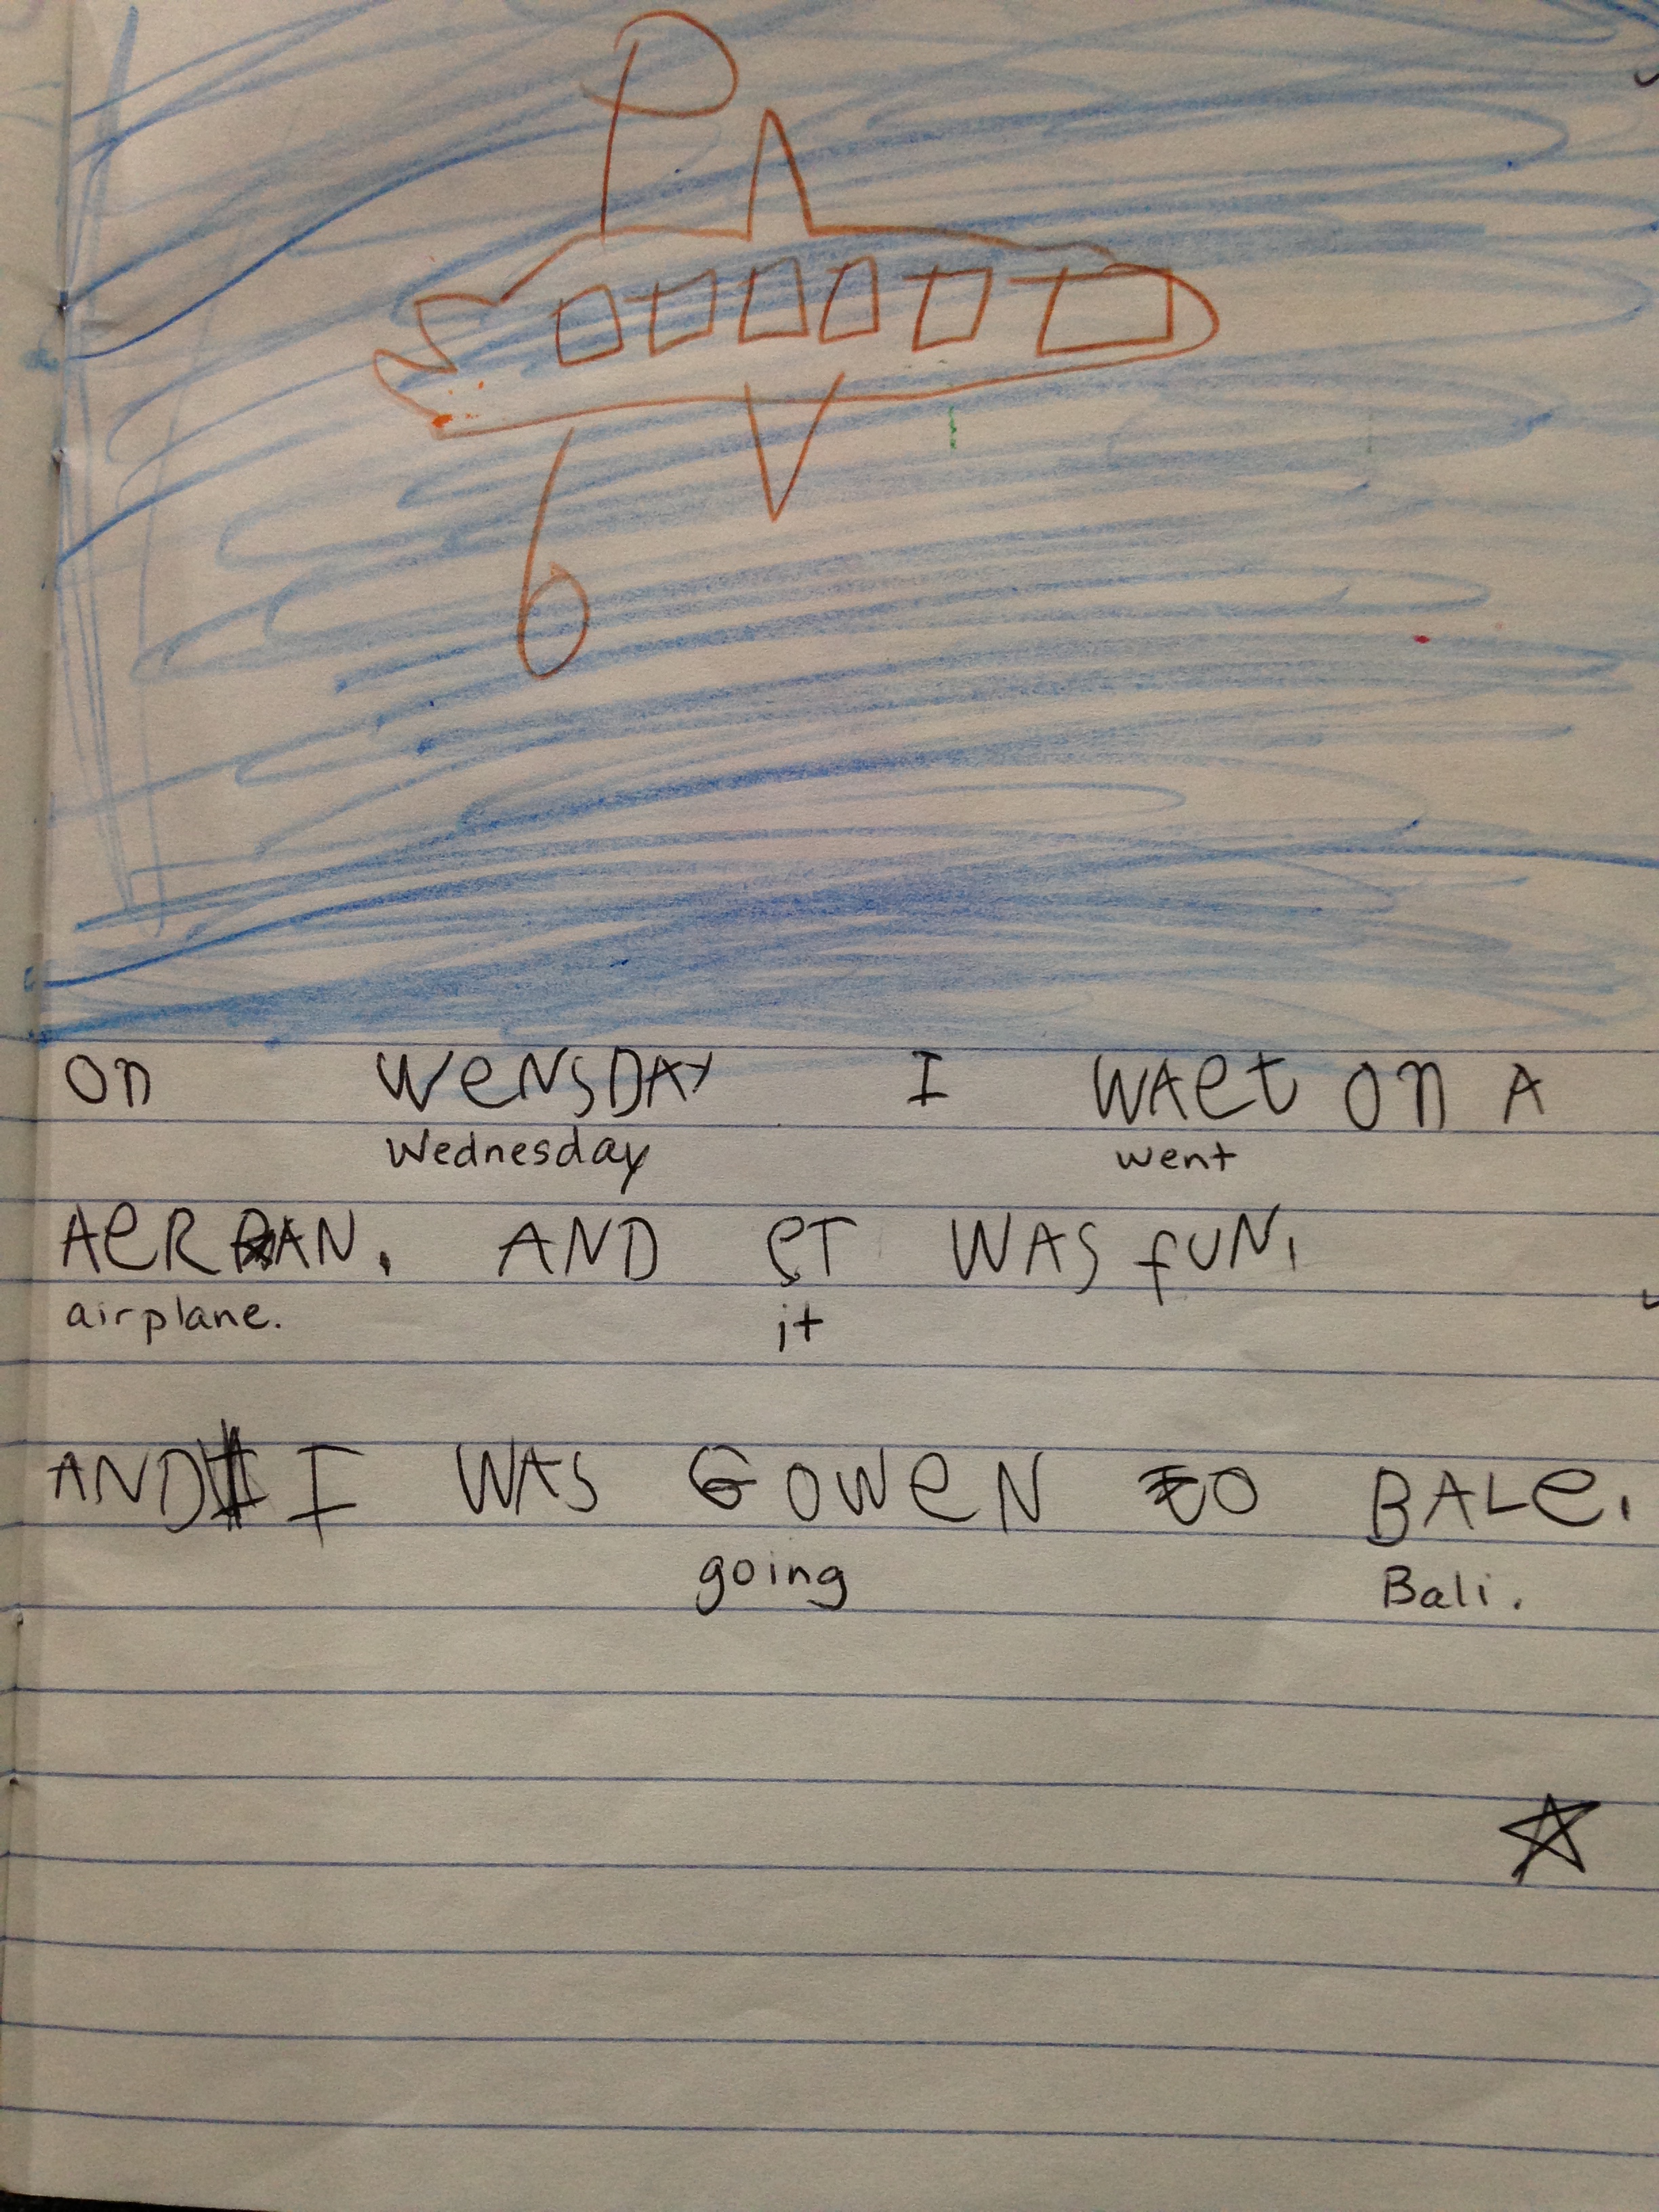 On WeNSDAY I WAet on A
Wednesday went
AeRPAN. AND eT WAS fUN.
airplane. it
AND I WAS GOWeN to BALe.
going Bali.